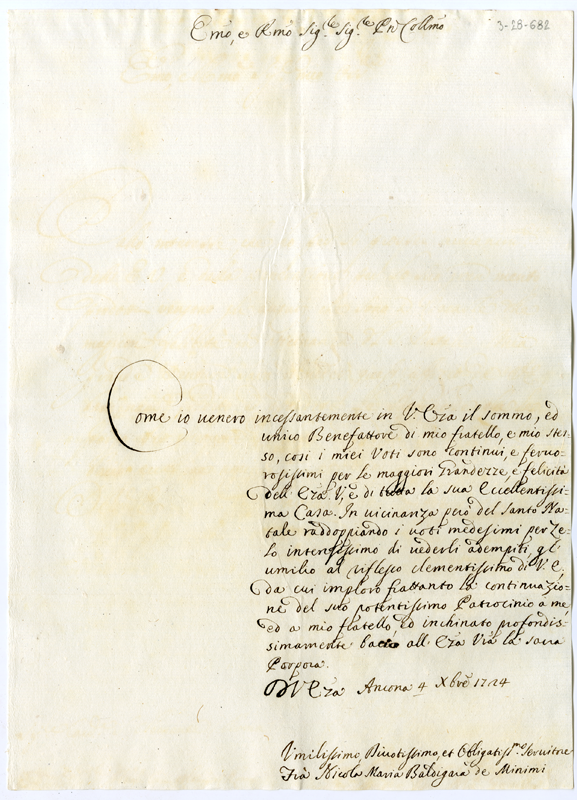 Emõ, e Rmõ Sig.re Sig.re Pñ Collmõ
3-28-682
Come io venero incessantemente in V. Eza il sommo, ed
unico Benefattore di mio fratello, e mio stes-
so, così i miei Voti sono continui, e feruo-
rosissimi per le maggiori Grandezze, e felicità
dell' Eza V., e di tutta la sua Eccellentissi-
ma Casa. In vicinanza però del Santo Na-
tale raddoppiando i voti medesimi per ze-
lo intensissimo di vederli adempiti, gl'
umilio al riflesso clementissimo di V. E.
da cui imploro frattanto la continuazio-
ne del suo potentissimo Patrocinio a me,
ed a mio fratello, ed inchinato profondis-
simamente bacio all' Eza Vrã la sacra
Porpora.
D V Eza Ancona 4 Xbre 1724
Vmilissimo, Diuotissimo, et Obligatiss.mo Seruitore
Frà Nicola Maria Baldigara de Minimi